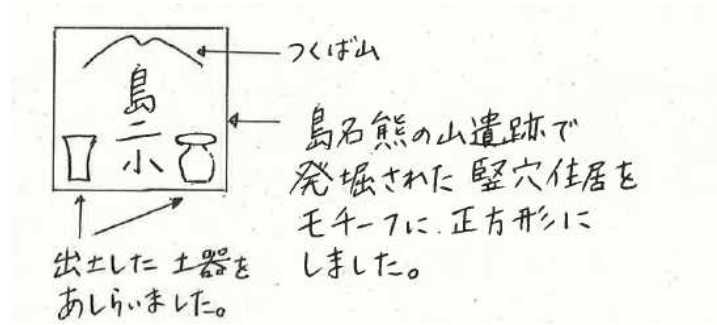 つくば山
島
二
小
島名熊の山遺跡で
発堀された竪穴住居を
モチーフに.正方形に
しました。
出土した土器を
あしらいました。